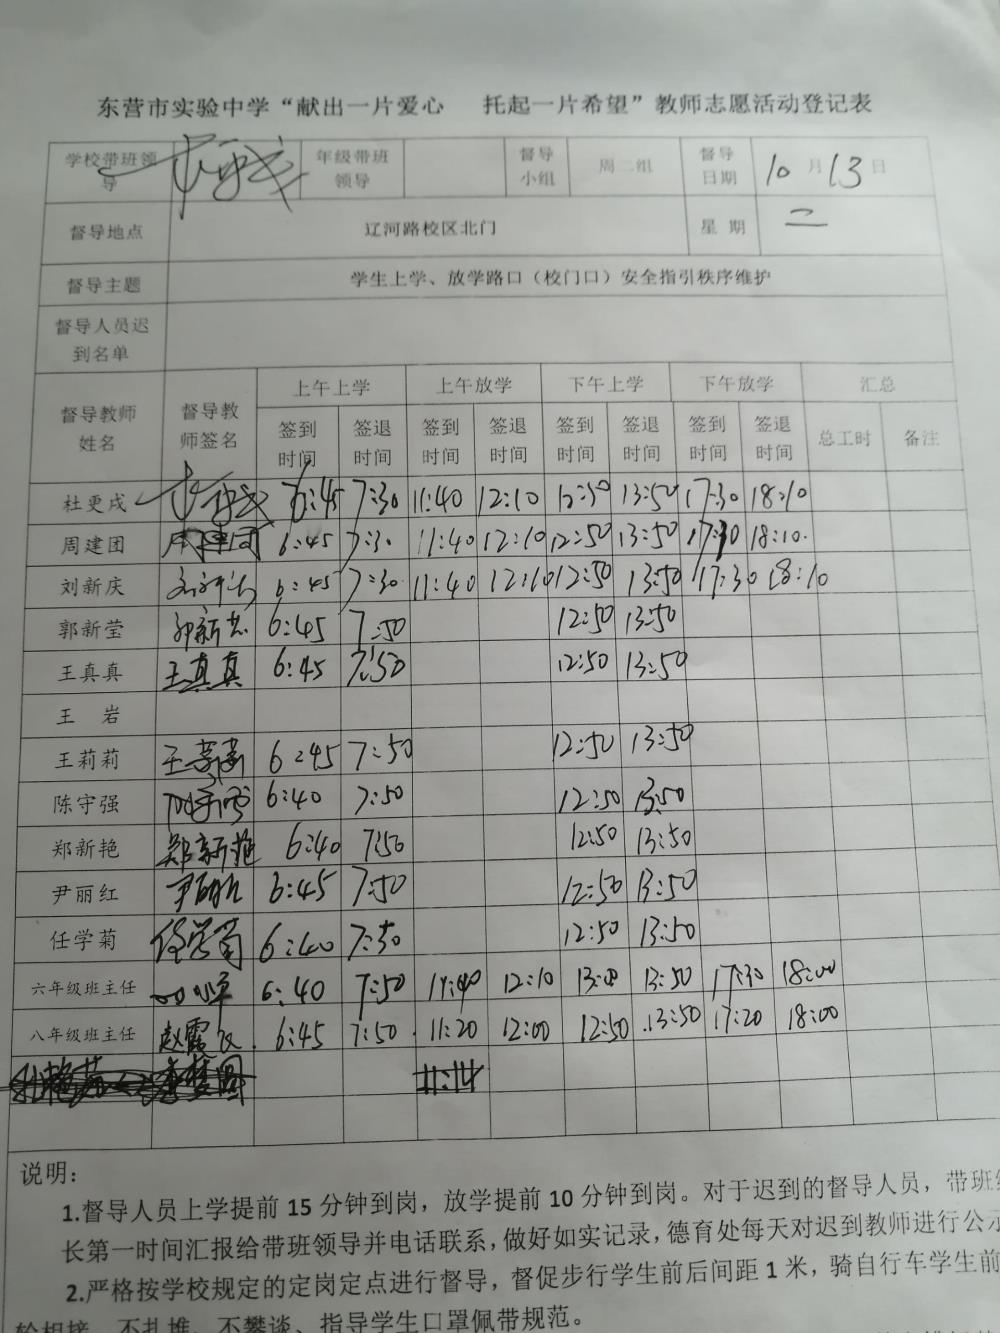 东营市实验中学“献出一片爱心 托起一片希望”教师志愿活动登记表
学校带班领导 年级带班领导 督导小组 周二组 督导日期 10月13日
督导地点 辽河路校区北门 星期 二
督导主题 学生上学、放学路口（校门口）安全指引秩序维护
督导人员迟到名单
督导教师姓名 督导教师签名 上午上学 上午放学 下午上学 下午放学 汇总
签到时间 签退时间 签到时间 签退时间 签到时间 签退时间 签到时间 签退时间 总工时 备注
杜更戌 6:45 7:30 11:40 12:10 12:50 13:50 17:30 18:10
周建团 周建团 6:45 7:30 11:40 12:10 12:50 13:50 17:30 18:10.
刘新庆 6:45 7:30 11:40 12:10 12:50 13:50 17:30 18:10
郭新莹 6:45 7:50 12:50 13:50
王真真 王真真 6:45 7:50 12:50 13:50
王 岩
王莉莉 王莉莉 6:45 7:50 12:50 13:50
陈守强 6:40 7:50 12:50 13:50
郑新艳 郑新艳 6:40 7:50 12:50 13:50
尹丽红 尹丽红 6:45 7:50 12:50 13:50
任学菊 任学菊 6:40 7:30 12:50 13:50
六年级班主任 6:40 7:50 11:40 12:10 13:00 13:50 17:30 18:00
八年级班主任 6:45 7:50 11:20 12:00 12:50 13:50 17:20 18:00
说明：
1.督导人员上学提前 15 分钟到岗，放学提前 10 分钟到岗。对于迟到的督导人员，带班
长第一时间汇报给带班领导并电话联系，做好如实记录，德育处每天对迟到教师进行公示
2.严格按学校规定的定岗定点进行督导，督促步行学生前后间距 1 米，骑自行车学生前
轮相接，不扎堆、不攀谈、指导学生口罩佩带规范。